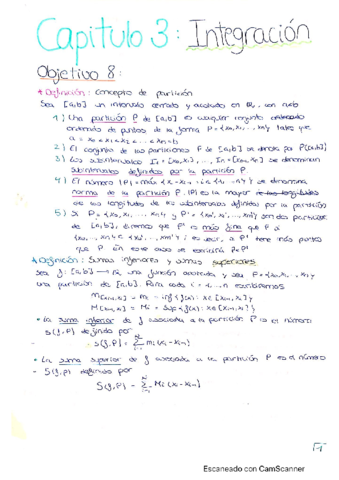 Capitulo 3: Integración
Objetivo 8:
* Definición: concepto de partición
Sea [a,b] un intervalo cerrado y acotado en ℝ, con a<b
1) Una partición P de [a,b] es cualquier conjunto ordenado
ordenado de puntos de la forma P = {x0, x1, ..., xn} tales que
a = x0 < x1 < x2 < ... < xn = b
2) El conjunto de las particiones P de [a,b] se denota por P([a,b])
3) Los subintervalos I1 = [x0, x1], ..., In = [xn-1, xn] se denominan
subintervalos definidos por la partición P.
4) El número |P| = max {xi - xi-1, i ∈ {1, ..., n}} se denomina
norma de la partición P. |P| es la mayor de las longitudes
de las longitudes de los subintervalos definidos por la partición
5) Si P = {x0, x1, ..., xn} y P' = {x0', x1', ..., xm'} son dos particiones
de [a,b], diremos que P' es más fina que P si
{x0, ..., xn} ⊂ {x0', ..., xm'}; es decir, a P' tiene más puntos
que P. En ese caso se escribirá P ≤ P'
* Definición: Sumas inferiores y sumas superiores
Sea f: [a,b] → ℝ una función acotada y sea P = {x0, x1, ..., xn} 
una partición de [a,b]. Para cada i = 1, ..., n escribiremos
m[xi-1, xi] = mi = inf {f(x): x ∈ [xi-1, xi]}
M[xi-1, xi] = Mi = sup {f(x): x ∈ [xi-1, xi]}
• La suma inferior de f asociada a la partición P es el número
s(f,P) definido por
s(f,P) = Σ mi (xi - xi-1)
• La suma superior de f asociada a la partición P es el número
S(f,P) definido por
S(f,P) = Σ Mi (xi - xi-1)
Escaneado con CamScanner